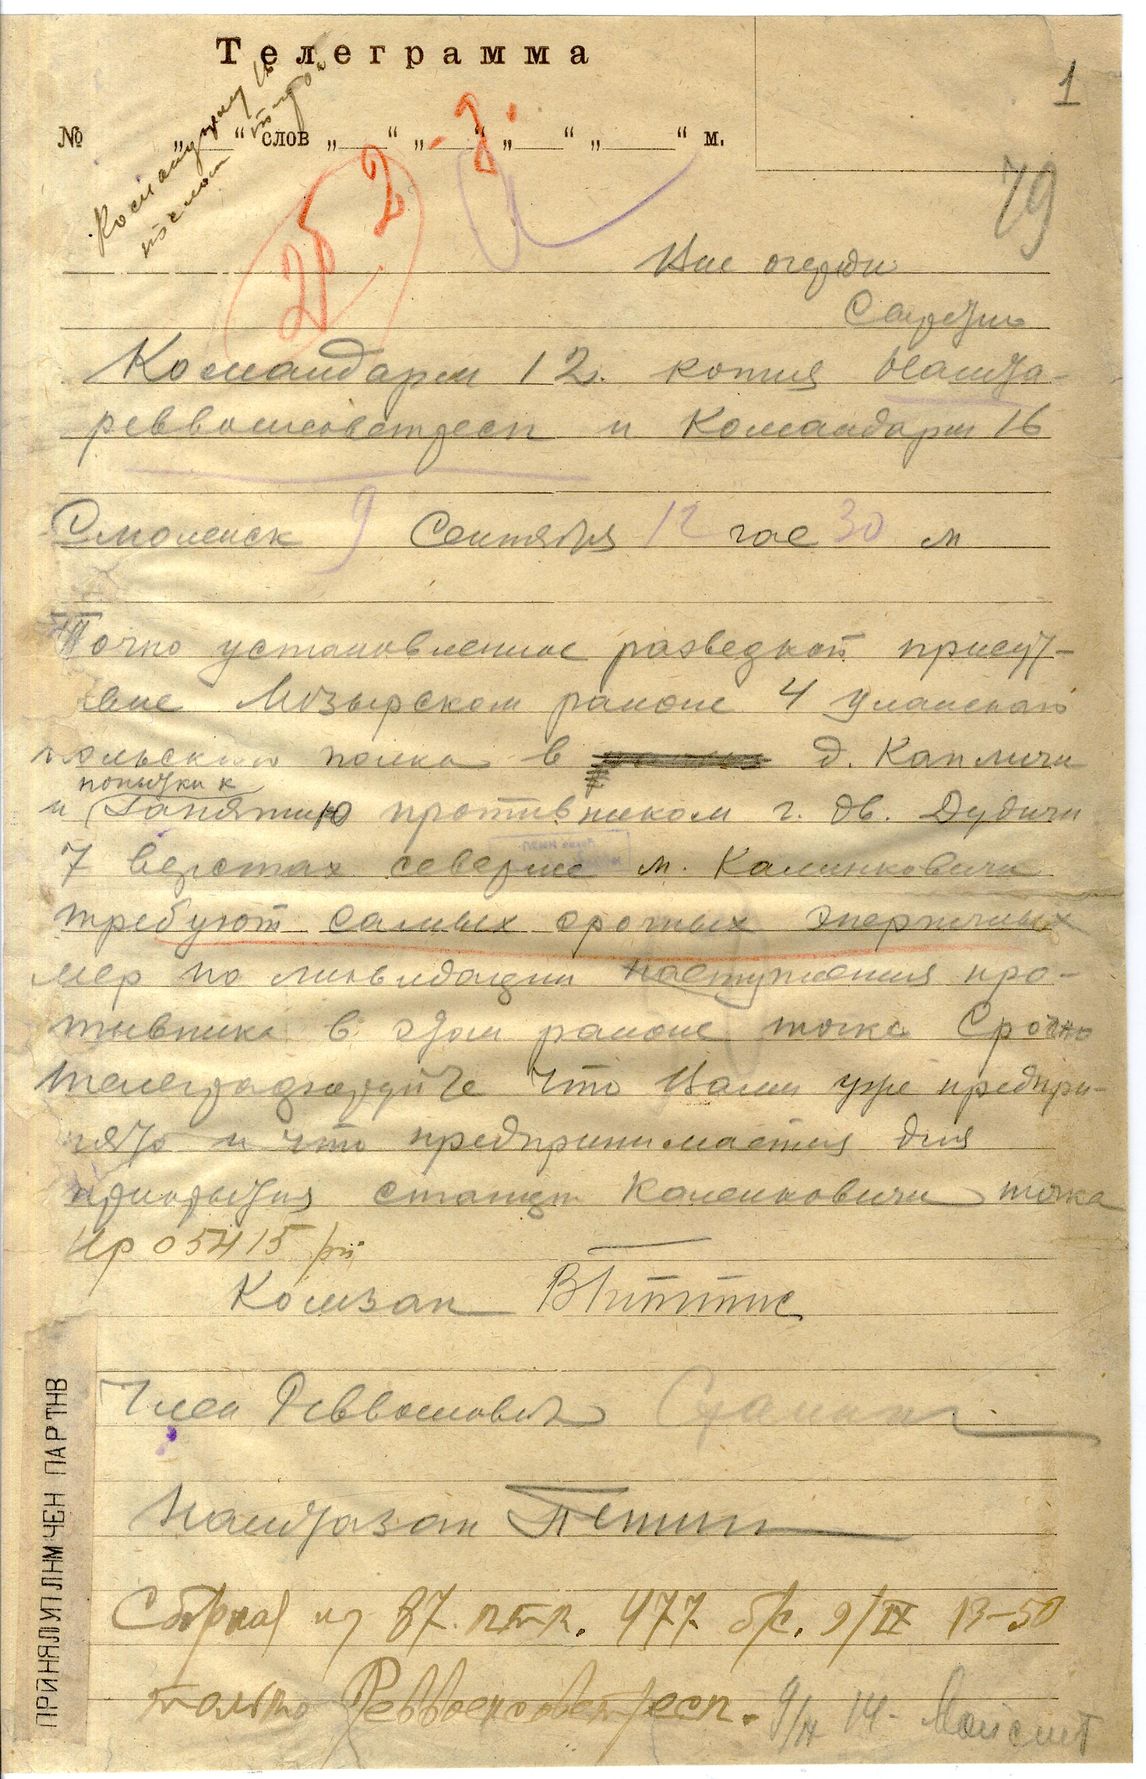 Телеграмма
1
№ „ “ слов „ “ „ “ „ “ „ “ м.
79
25 2
Вне очереди
Серпухов
Командарм 12. копия Наштa-
реввоенсоветресп и Командарм 16
Смоленск 9 Сентября 12 час 30 м
Точно установленное разведкой присут-
вие Мозырском районе 4 уланского
польского полка в д. Капличи
попытки к
и Занятию противником г. дв. Дудичи
7 верстах севернее м. Калинковичи
требуют самых срочных энергичных
мер по ликвидации наступления про-
тивника в этом районе точка Срочно
телеграфируйте что Вами уже предпри-
нято и что предпринимается для
прикрытия станции Каленковичи точка
Нр 05415
Комзап
Член Реввоенсовета Сталин
Наштазап Петин
из 87. 477 9/IX 13-50
только Реввоенсоветресп. 9/IX 14-
ПРИНЯЛ ИТЛНМ ЧЕН ПАРТНВ